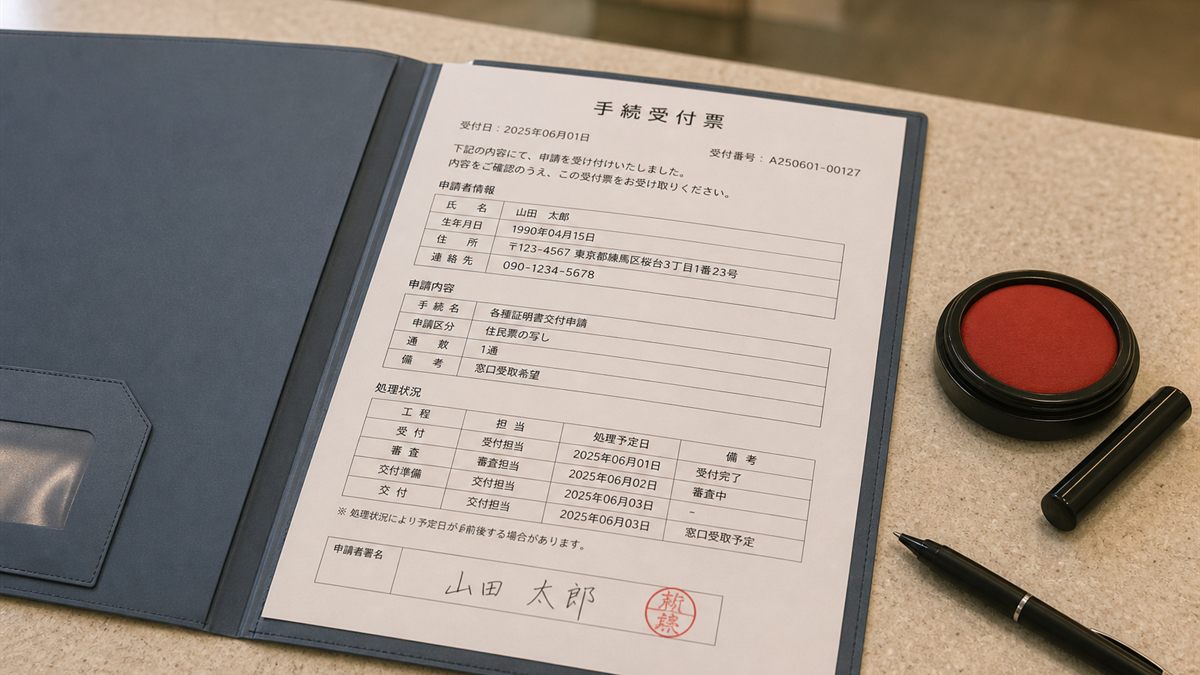 手続受付票
受付日：2025年06月01日
受付番号：A250601-00127
下記の内容にて、申請を受け付けいたしました。
内容をご確認のうえ、この受付票をお受け取りください。
申請者情報
氏　名　山田　太郎
生年月日　1990年04月15日
住　所　〒123-4567 東京都練馬区桜台3丁目1番23号
連絡先　090-1234-5678
申請内容
手続名　各種証明書交付申請
申請区分　住民票の写し
通　数　1通
備　考　窓口受取希望
処理状況
工程　担当　処理予定日　備考
受付　受付担当　2025年06月01日　受付完了
審査　審査担当　2025年06月02日　審査中
交付準備　交付担当　2025年06月03日　–
交付　交付担当　2025年06月03日　窓口受取予定
※ 処理状況により予定日が前後する場合があります。
申請者署名　山田　太郎